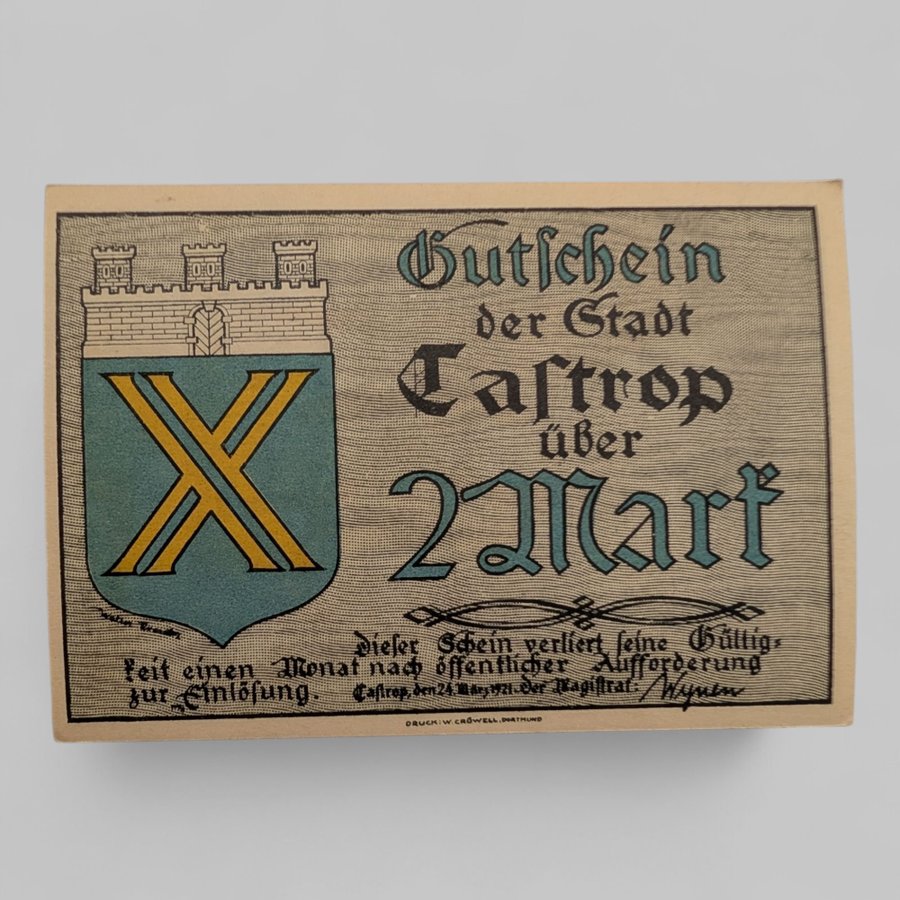 Gutschein
der Stadt
Castrop
über
2 Mark
Dieser Schein verliert seine Gültig-
keit einen Monat nach öffentlicher Aufforderung
zur Einlösung. Castrop, den 24. März 1921. Der Magistrat: Wynen
DRUCK: W. CRÜWELL, DORTMUND